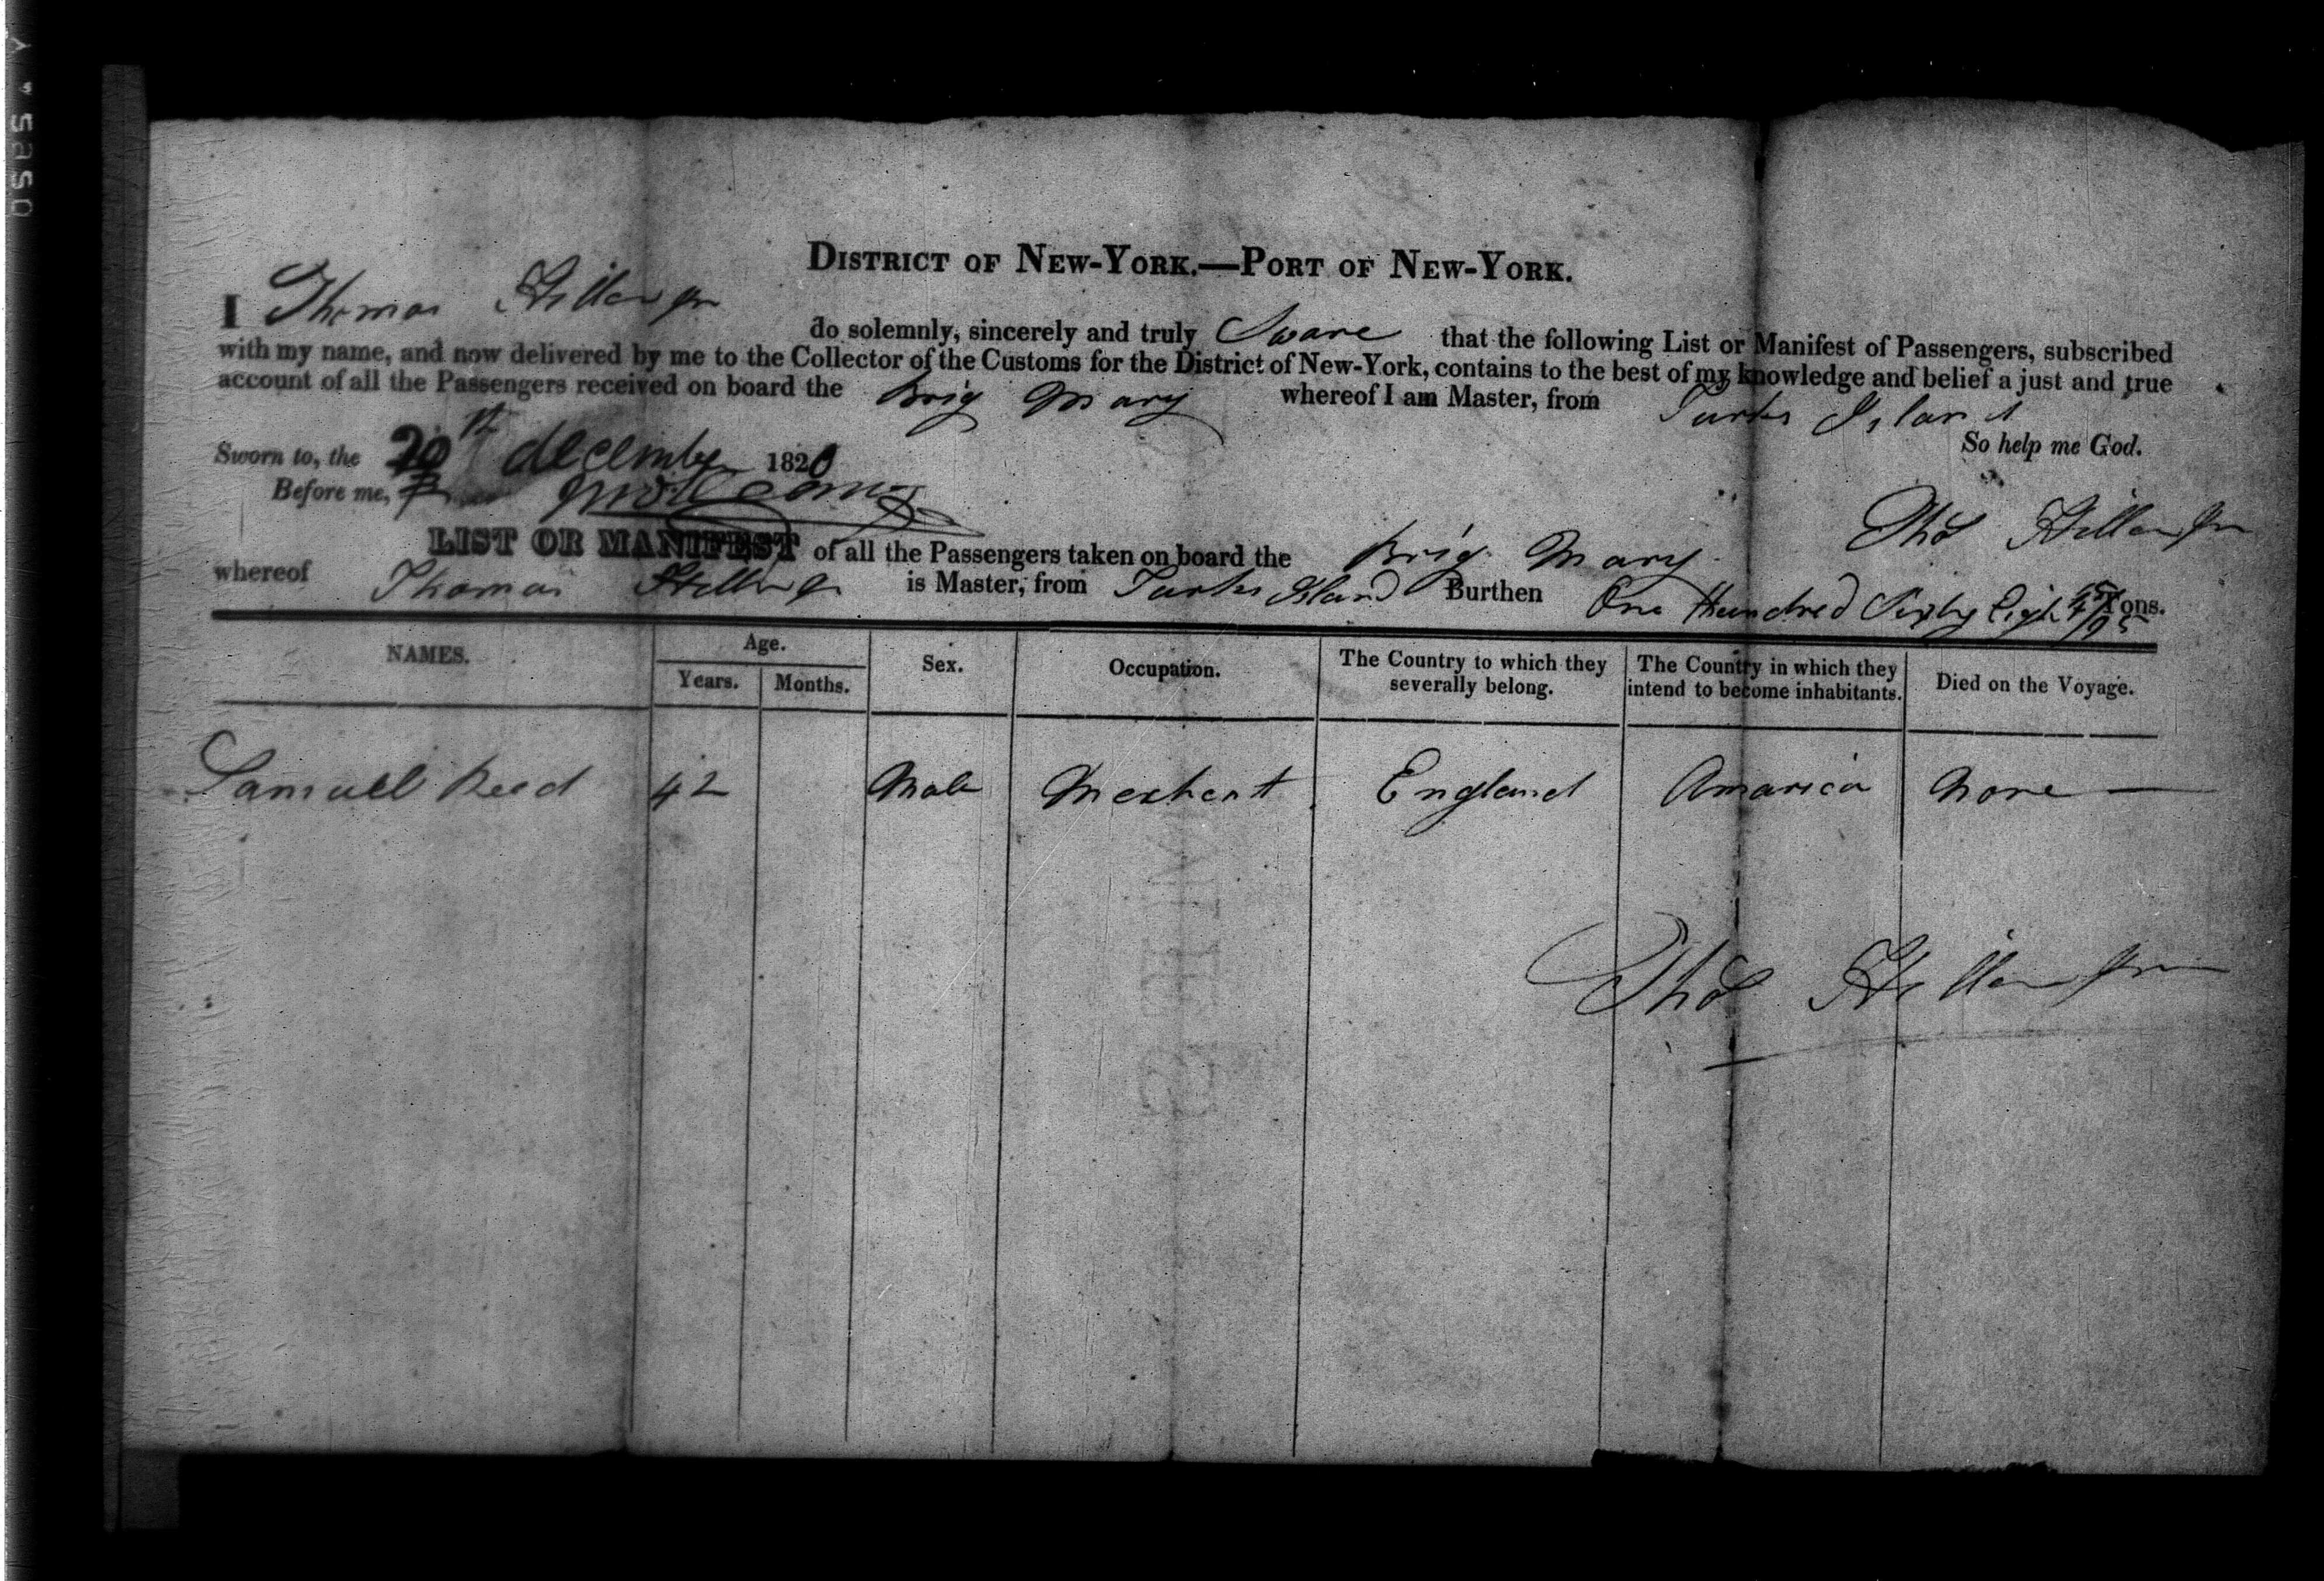 DISTRICT OF NEW-YORK.—PORT OF NEW-YORK.
I Thomas Hiller Jr do solemnly, sincerely and truly Sware that the following List or Manifest of Passengers, subscribed
with my name, and now delivered by me to the Collector of the Customs for the District of New-York, contains to the best of my knowledge and belief a just and true
account of all the Passengers received on board the Brig Mary whereof I am Master, from Turks Island
So help me God.
Sworn to, the 20 december 1820
Before me,
Thos Hiller Jr
LIST OR MANIFEST of all the Passengers taken on board the Brig Mary
whereof Thomas Hiller Jr is Master, from Turks Island Burthen One Hundred Sixty Eight Tons.
NAMES. Age. Sex. Occupation. The Country to which they severally belong. The Country in which they intend to become inhabitants. Died on the Voyage.
Years. Months.
Samuell Reed 42 Male Merchent England Amarica None —
Thos Hiller Jr